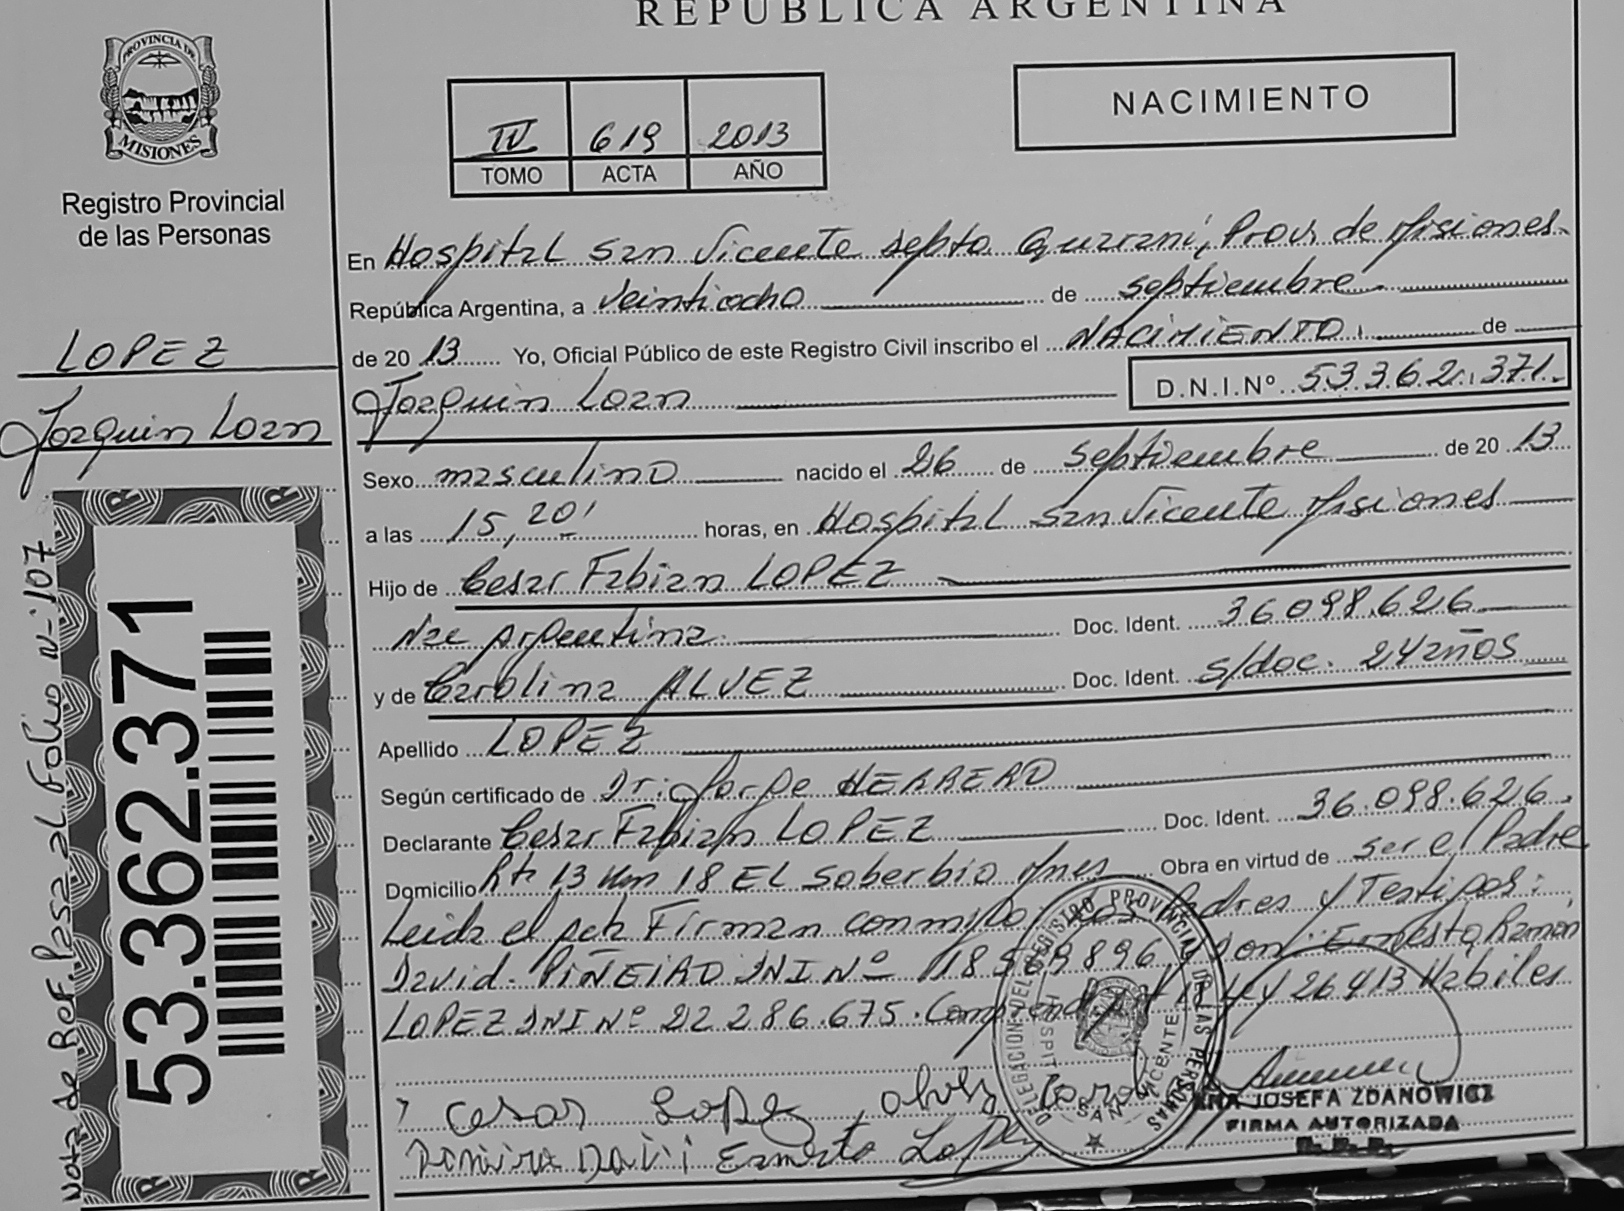 REPÚBLICA ARGENTINA
PROVINCIA DE
MISIONES
Registro Provincial
de las Personas
IV 619 2013
TOMO ACTA AÑO
NACIMIENTO
En Hospital San Vicente depto. Guarani, Prov. de Misiones.
República Argentina, a Veintiocho de septiembre
de 20 13 Yo, Oficial Público de este Registro Civil inscribo el NACIMIENTO de
Joaquin Loan D.N.I.Nº 53.362.371.
LOPEZ
Joaquin Loan
Sexo masculino nacido el 26 de septiembre de 20 13
a las 15,20' horas, en Hospital San Vicente Misiones
Hijo de Cesar Fabian LOPEZ
Nac Argentina Doc. Ident. 36.098.626
y de Carolina ALVEZ Doc. Ident. s/doc. 24 años
Apellido LOPEZ
Según certificado de Dr. Jorge HERRERO
Declarante Cesar Fabian LOPEZ Doc. Ident. 36.098.626.
Domicilio Rta 13 Km 18 EL Soberbio Mnes Obra en virtud de ser el Padre
Leida el acta Firman conmigo los Padres y Testigos:
David PIÑEIRO DNI Nº y don Ernesto Ramón
LOPEZ DNI Nº 22.286.675. Ley 26413 Habiles
Cesar Lopez, Alvez
David Ernesto Lopez
DELEGACION DEL REGISTRO PROVINCIAL DE LAS PERSONAS
HOSPITAL
SAN VICENTE
ANA JOSEFA ZDANOWICZ
FIRMA AUTORIZADA
53.362.371
Nota de Ref. Pasa al Folio Nº 107